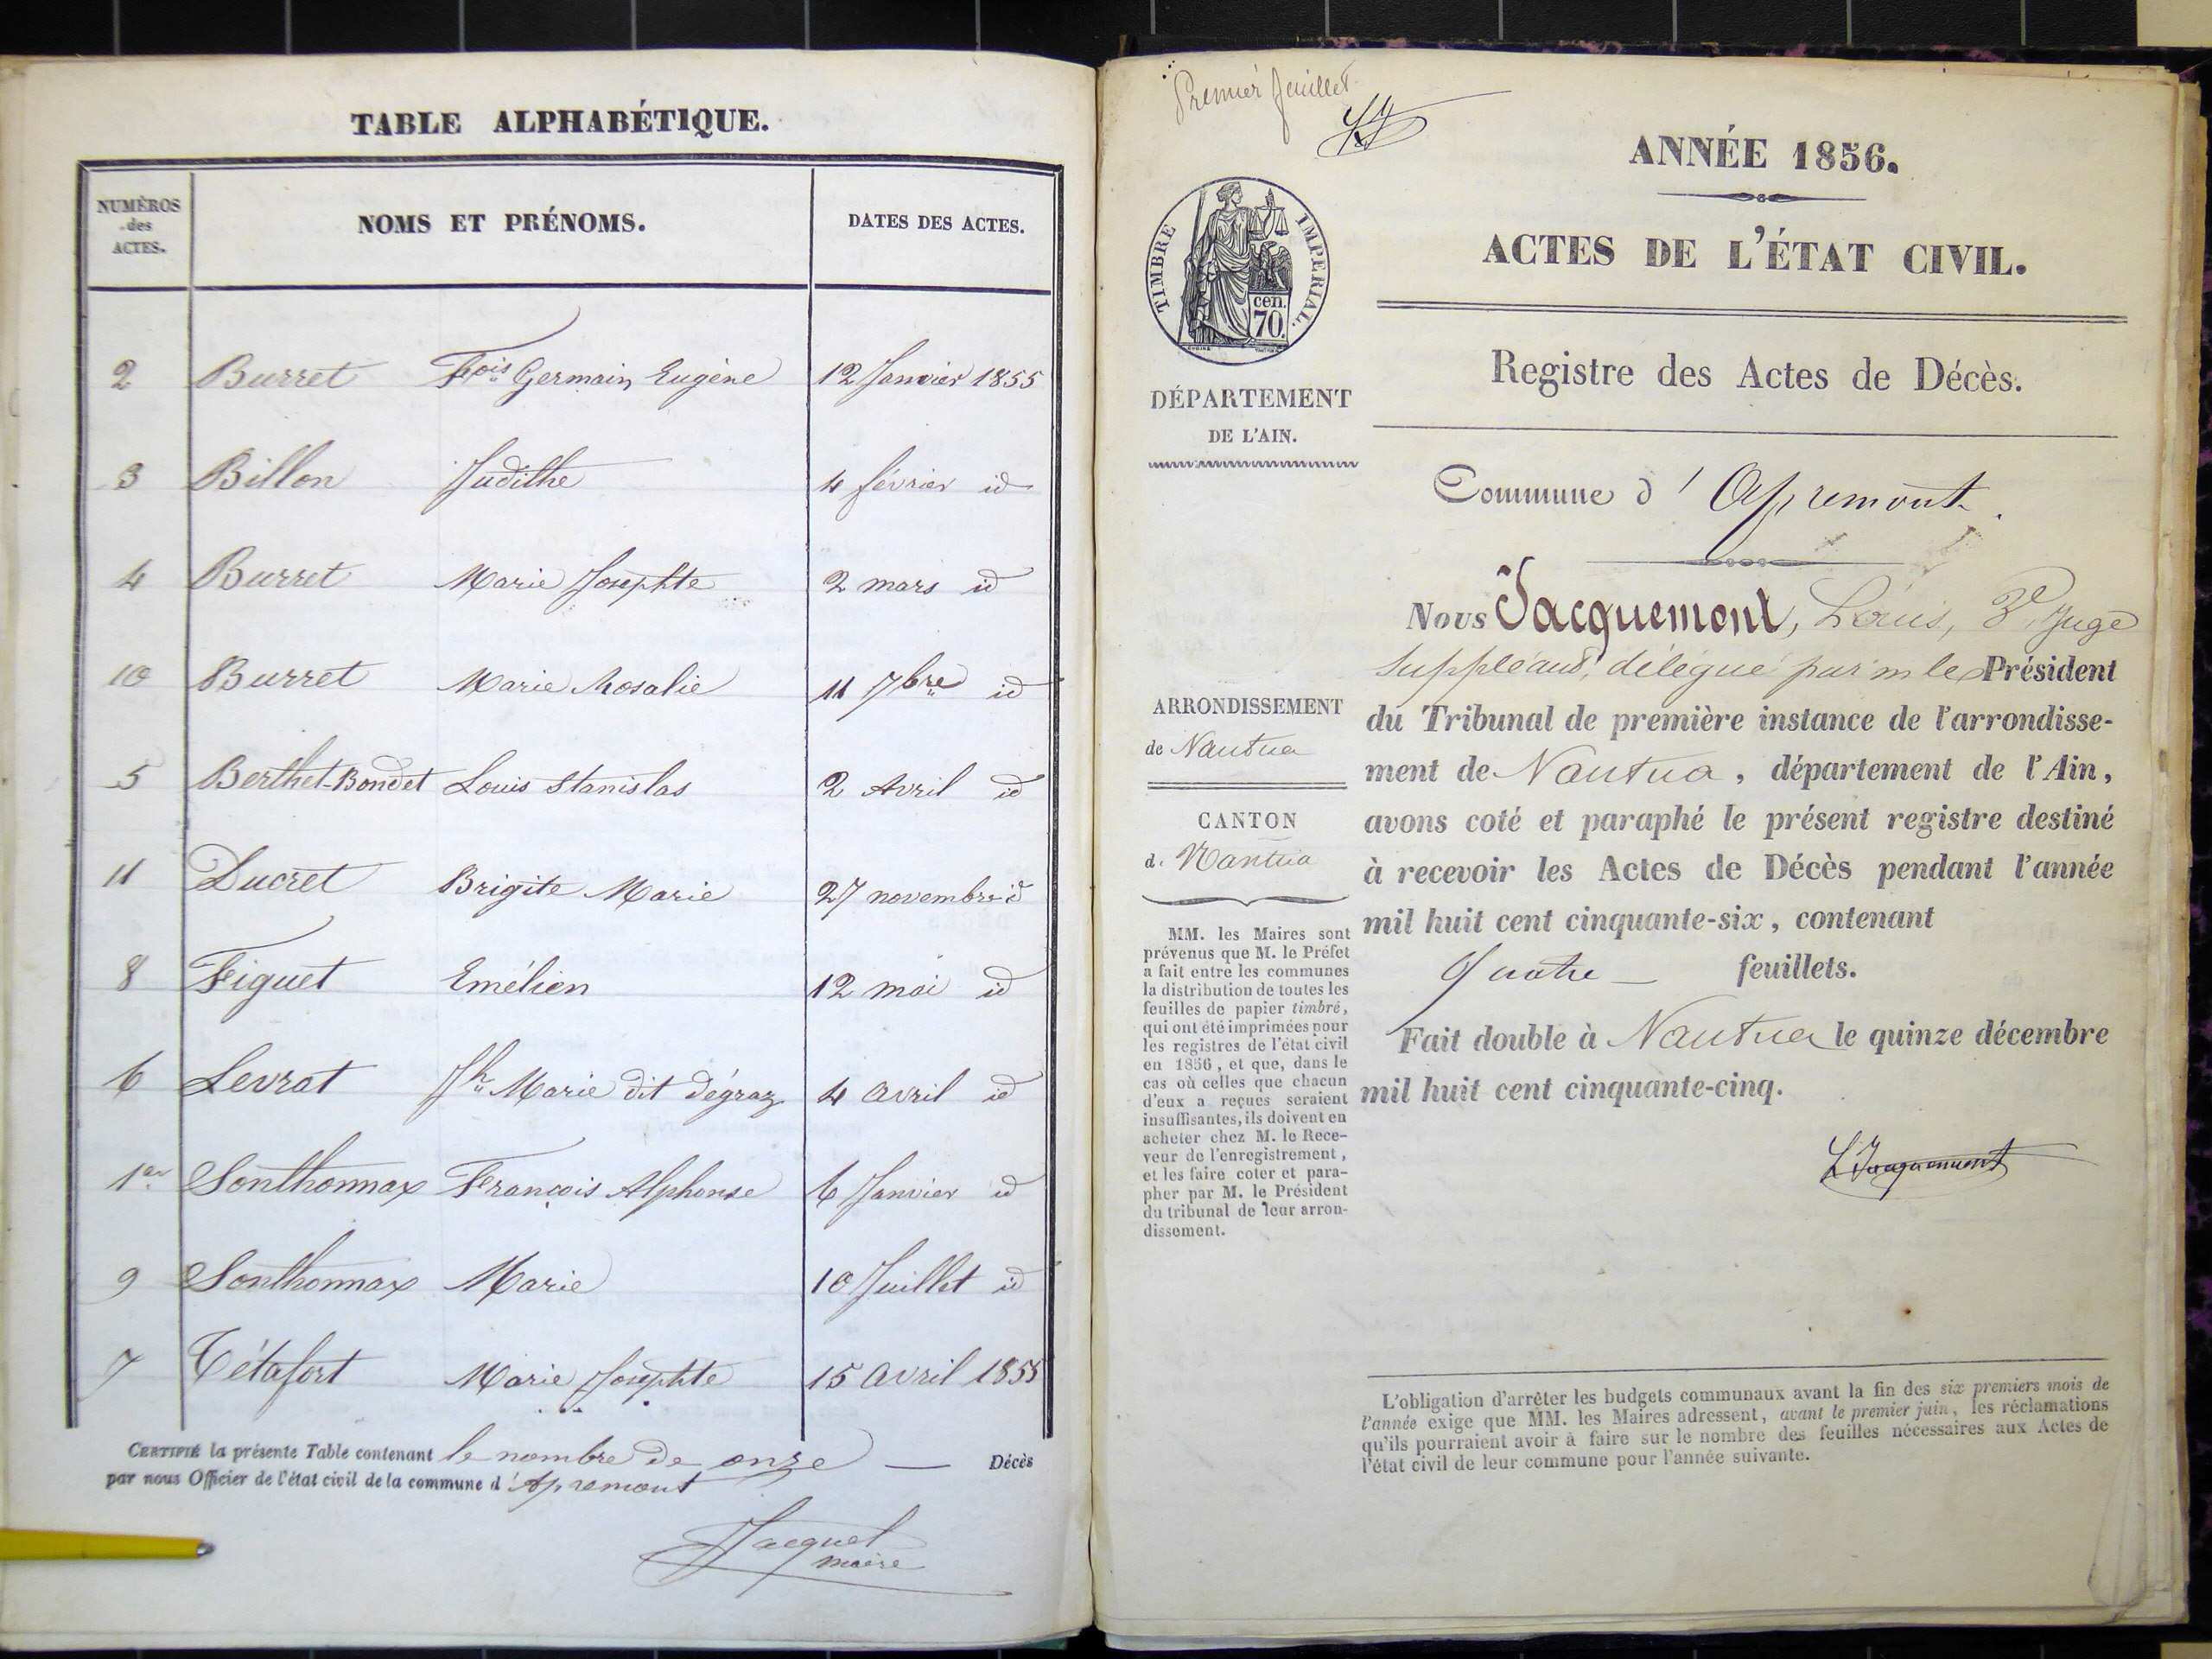 TABLE ALPHABÉTIQUE.
NUMÈROS des ACTES.
NOMS ET PRÉNOMS.
DATES DES ACTES.
2 Burret Fois Germain Eugène 12 Janvier 1855
3 Billon Judithe 4 février id
4 Burret Marie Josephte 2 mars id
10 Burret Marie Rosalie 11 7bre id
5 Berthet-Bondet Louis Stanislas 2 Avril id
11 Ducret Brigite Marie 27 novembre id
8 Figuet Emélien 12 mai id
6 Levrat Jh Marie dit Dégraz 4 avril id
1er Sonthonnax François Alphonse 6 Janvier id
9 Sonthonnax Marie 10 Juillet id
7 Tétafort Marie Josephte 15 avril 1855
CERTIFIÉ la présente Table contenant le nombre de onze — Décès
par nous Officier de l'état civil de la commune d'Apremont
Jacquet
maire
Premier feuillet
TIMBRE IMPERIAL.
cen.
70.
DÉPARTEMENT
DE L'AIN.
ARRONDISSEMENT
de Nantua
CANTON
de Nantua
MM. les Maires sont
prévenus que M. le Préfet
a fait entre les communes
la distribution de toutes les
feuilles de papier timbré,
qui ont été imprimées pour
les registres de l'état civil
en 1856, et que, dans le
cas où celles que chacun
d'eux a reçues seraient
insuffisantes, ils doivent en
acheter chez M. le Rece-
veur de l'enregistrement,
et les faire coter et para-
pher par M. le Président
du tribunal de leur arron-
dissement.
ANNÉE 1856.
ACTES DE L'ÉTAT CIVIL.
Registre des Actes de Décès.
Commune d'Apremont.
Nous Jacquemont, Louis, 3e Juge
suppléant, délégué par m le Président
du Tribunal de première instance de l'arrondisse-
ment de Nantua, département de l'Ain,
avons coté et paraphé le présent registre destiné
à recevoir les Actes de Décès pendant l'année
mil huit cent cinquante-six, contenant
Quatre — feuillets.
Fait double à Nantua le quinze décembre
mil huit cent cinquante-cinq.
L Jacquemont
L'obligation d'arrêter les budgets communaux avant la fin des six premiers mois de
l'année exige que MM. les Maires adressent, avant le premier juin, les réclamations
qu'ils pourraient avoir à faire sur le nombre des feuilles nécessaires aux Actes de
l'état civil de leur commune pour l'année suivante.